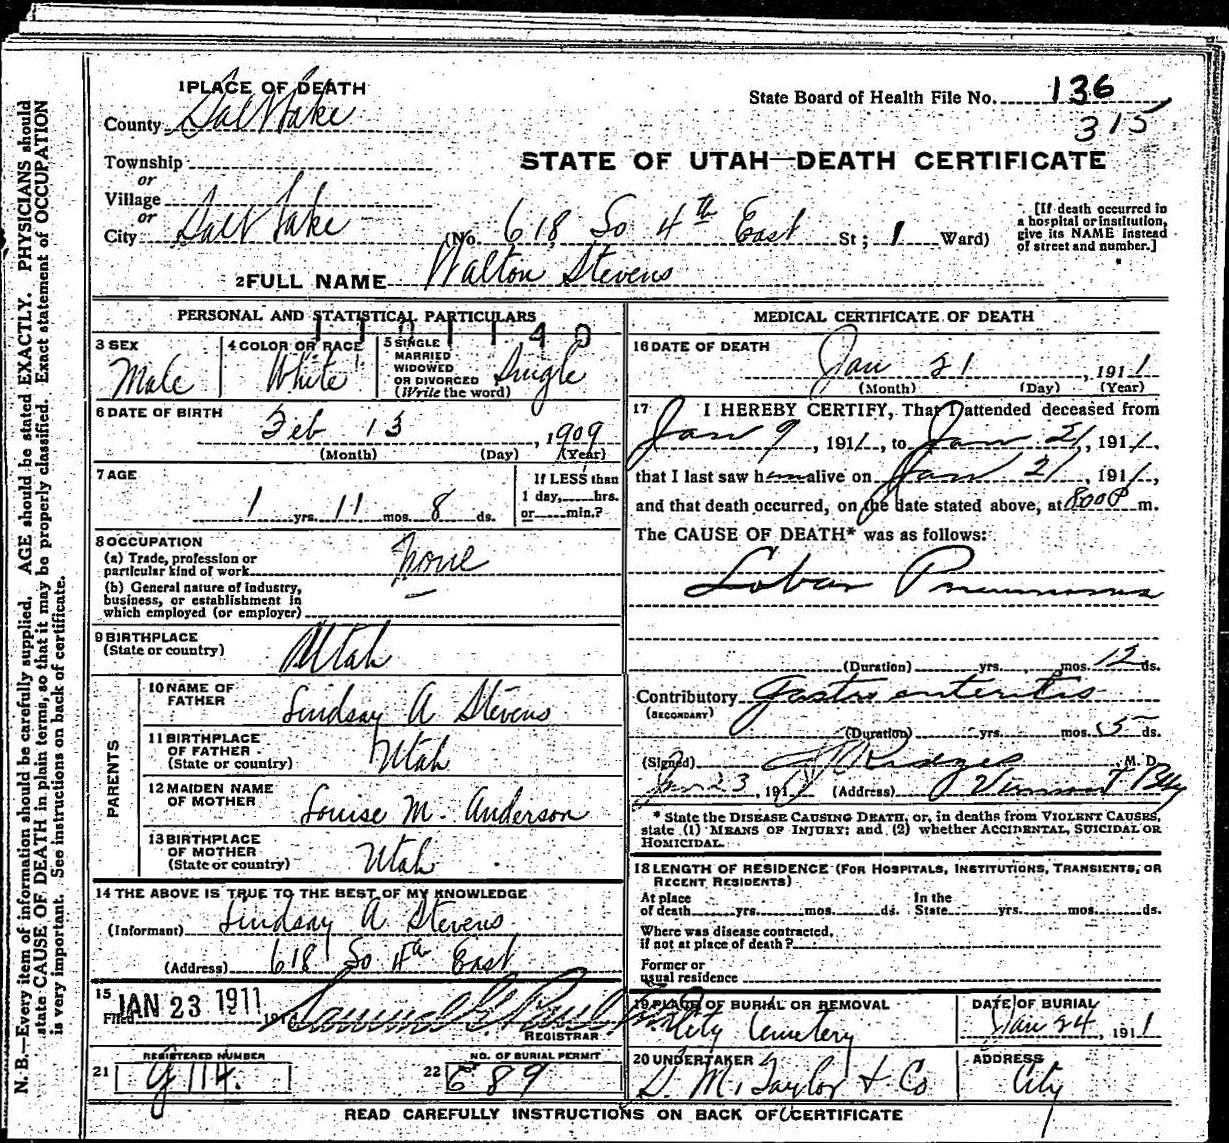 N. B.—Every item of information should be carefully supplied. AGE should be stated EXACTLY. PHYSICIANS should
state CAUSE OF DEATH in plain terms, so that it may be properly classified. Exact statement of OCCUPATION
is very important. See instructions on back of certificate.
1 PLACE OF DEATH
County Salt Lake
State Board of Health File No. 136
315
Township
or
Village
or
City Salt Lake
STATE OF UTAH—DEATH CERTIFICATE
(No. 618 So 4th East St; 1 Ward)
[If death occurred in
a hospital or institution,
give its NAME instead
of street and number.]
2 FULL NAME Walton Stevens
PERSONAL AND STATISTICAL PARTICULARS
3 SEX
Male
4 COLOR OR RACE
White
5 SINGLE
MARRIED
WIDOWED
OR DIVORCED
(Write the word)
Single
6 DATE OF BIRTH
Feb 13, 1909
(Month) (Day) (Year)
7 AGE
1 yrs. 11 mos. 8 ds.
If LESS than
1 day, hrs.
or min.?
8 OCCUPATION
(a) Trade, profession or
particular kind of work None
(b) General nature of industry,
business, or establishment in
which employed (or employer)
9 BIRTHPLACE
(State or country) Utah
PARENTS
10 NAME OF
FATHER Lindsay A Stevens
11 BIRTHPLACE
OF FATHER
(State or country) Utah
12 MAIDEN NAME
OF MOTHER Louise M. Anderson
13 BIRTHPLACE
OF MOTHER
(State or country) Utah
14 THE ABOVE IS TRUE TO THE BEST OF MY KNOWLEDGE
(Informant) Lindsay A Stevens
(Address) 618 So 4th East
15
Filed JAN 23 1911 19
REGISTRAR
REGISTERED NUMBER
21
NO. OF BURIAL PERMIT
22 689
MEDICAL CERTIFICATE OF DEATH
16 DATE OF DEATH
Jan 21, 1911
(Month) (Day) (Year)
17 I HEREBY CERTIFY, That I attended deceased from
Jan 9, 1911, to Jan 21, 1911,
that I last saw him alive on Jan 21, 1911,
and that death occurred, on the date stated above, at 800 P m.
The CAUSE OF DEATH* was as follows:
Lobar Pneumonia
(Duration) yrs. mos. 12 ds.
Contributory Gastro enteritis
(SECONDARY)
(Duration) yrs. mos. 5 ds.
(Signed) M. D.
Jan 23, 191 (Address) Vermont Bldg
* State the DISEASE CAUSING DEATH, or, in deaths from VIOLENT CAUSES,
state (1) MEANS OF INJURY; and (2) whether ACCIDENTAL, SUICIDAL OR
HOMICIDAL.
18 LENGTH OF RESIDENCE (FOR HOSPITALS, INSTITUTIONS, TRANSIENTS, OR
RECENT RESIDENTS)
At place
of death yrs. mos. ds.
In the
State yrs. mos. ds.
Where was disease contracted,
if not at place of death?
Former or
usual residence
19 PLACE OF BURIAL OR REMOVAL
City Cemetery
DATE OF BURIAL
Jan 24, 1911
20 UNDERTAKER
S. M. Taylor & Co
ADDRESS
City
READ CAREFULLY INSTRUCTIONS ON BACK OF CERTIFICATE